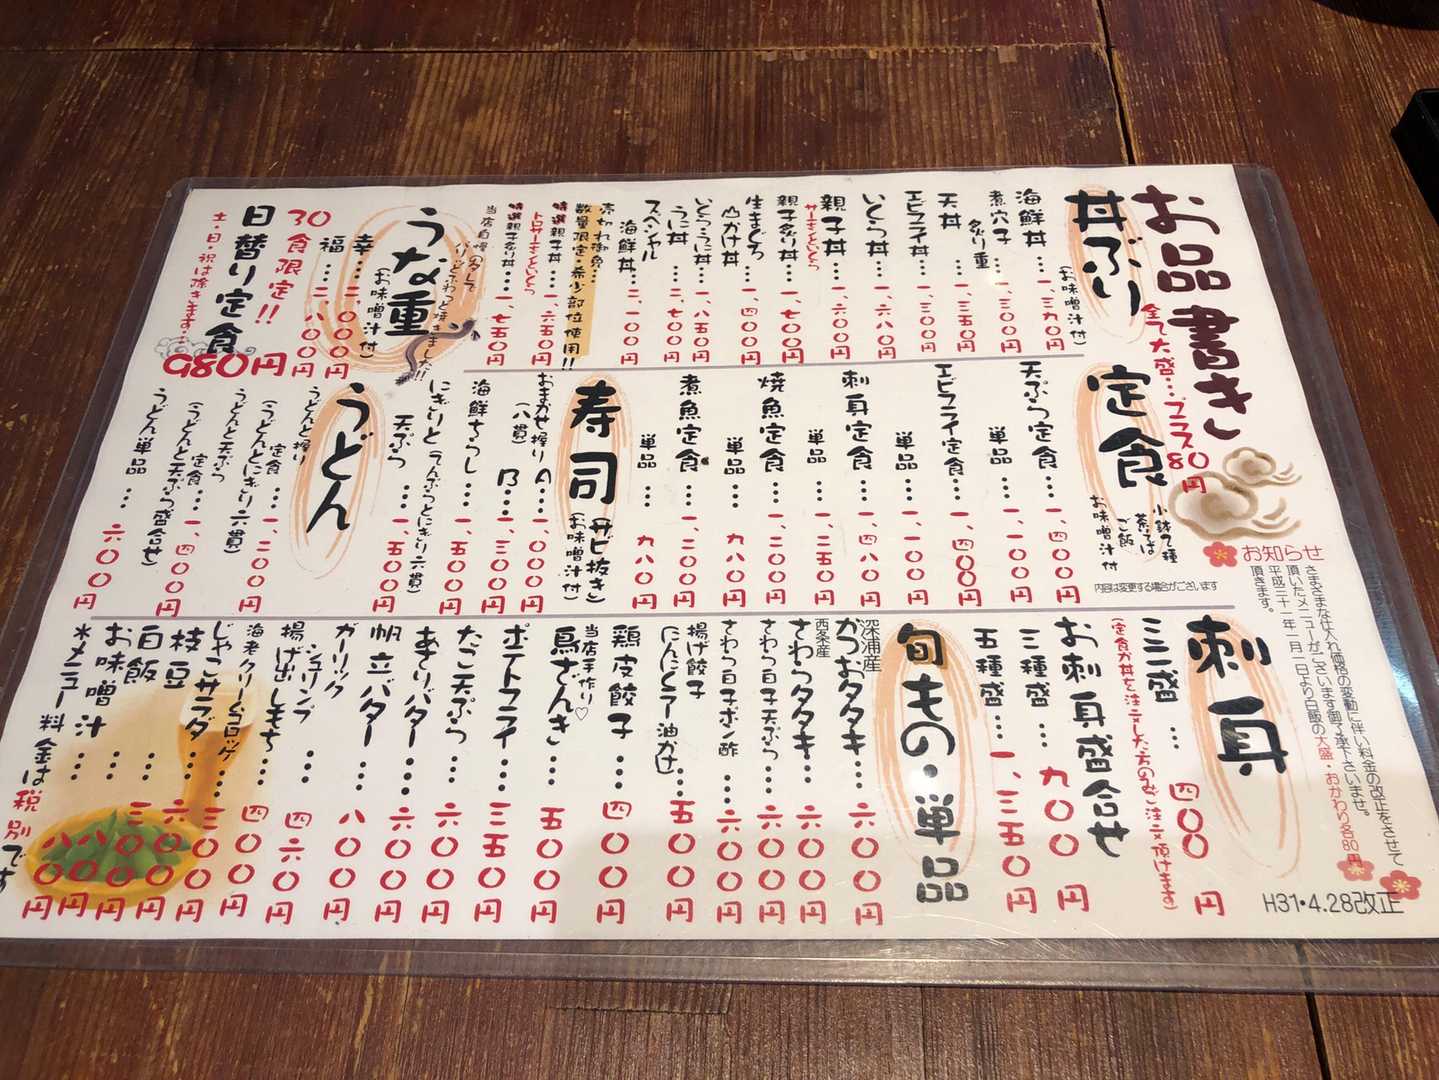 お品書き
全て大盛…プラス80円
丼ぶり
(お味噌汁付)
海鮮丼…一、三九〇円
煮穴子炙り重…一、三五〇円
天丼…一、三〇〇円
エビフライ丼…一、三〇〇円
いくら丼…一、六八〇円
親子丼…一、六〇〇円
サーモンといくら
親子炙り丼…一、七〇〇円
生まぐろ山かけ丼…一、四〇〇円
いくらうに丼…一、八五〇円
うに丼…二、七〇〇円
スペシャル海鮮丼…二、一〇〇円
売切れ御免…
数量限定・希少部位使用!!
特選親子丼…一、六五〇円
トロサーモンといくら
特選親子炙り丼…一、七五〇円
うな重
(お味噌汁付)
幸…一、〇〇〇円
福…二、八〇〇円
30食限定!!
日替り定食
980円
土・日・祝は除きます…
定食
小鉢2種
茶そば
ご飯
お味噌汁付
内容は変更する場合がございます
天ぷら定食…一、四〇〇円
単品…一、一〇〇円
エビフライ定食…一、四〇〇円
単品…一、一〇〇円
刺身定食…一、四八〇円
単品…一、二五〇円
焼魚定食…一、二〇〇円
単品…九八〇円
煮魚定食…一、二〇〇円
単品…九八〇円
寿司
(サビ抜き)
(お味噌汁付)
おまかせ握りA…一、〇〇〇円
(八貫)B…一、三〇〇円
海鮮ちらし…一、五〇〇円
にぎりと天ぷら…一、五〇〇円
(てんぷらとにぎり六貫)
うどん
うどんと握り定食…一、二〇〇円
(うどんとにぎり六貫)
うどんと天ぷら定食…一、四〇〇円
(うどんと天ぷら盛合せ)
うどん単品…六〇〇円
お知らせ
さまざまな仕入れ価格の変動に伴い料金の改正をさせて
頂いたメニューがございます御了承下さいませ。
平成三十一年一月一日より白飯の大盛・おかわり各80円
頂きます。
H31・4.28改正
刺身
三二盛…四〇〇円
(定食か丼を注文した方のみご注文頂けます)
お刺身盛合せ
三種盛…九〇〇円
五種盛…一、三五〇円
旬もの・単品
深浦産
かつおタタキ…六〇〇円
西条産
さわらタタキ…六〇〇円
さわら白子天ぷら…六〇〇円
さわら白子ポン酢…六〇〇円
揚げ餃子
にんにくラー油がけ…五〇〇円
鶏皮餃子…四〇〇円
当店手作り♡
鳥ざんき…五〇〇円
ポテトフライ…三五〇円
たこ天ぷら…六〇〇円
あさりバター…六〇〇円
帆立バター…八〇〇円
ガーリックシュリンプ…六〇〇円
揚げ出しもち…四〇〇円
海老クリームコロッケ…四〇〇円
じゃこサラダ…六〇〇円
枝豆…三〇〇円
白飯…二〇〇円
お味噌汁…一八〇円
＊メニュー料金は税別です